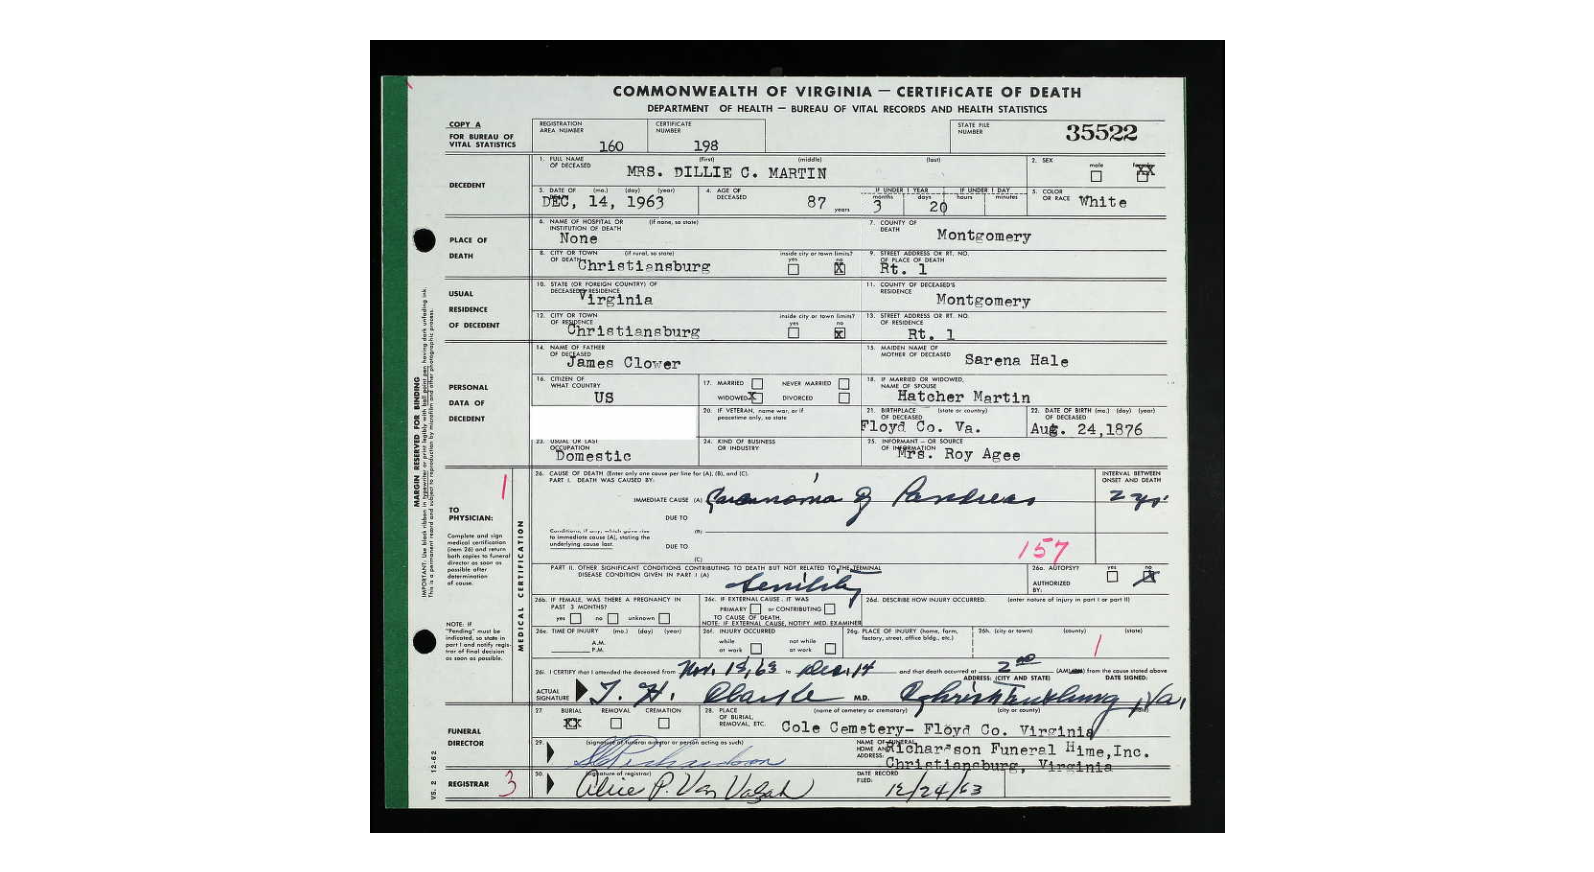 COMMONWEALTH OF VIRGINIA — CERTIFICATE OF DEATH
DEPARTMENT OF HEALTH — BUREAU OF VITAL RECORDS AND HEALTH STATISTICS
COPY A
FOR BUREAU OF
VITAL STATISTICS
REGISTRATION
AREA NUMBER
160
CERTIFICATE
NUMBER
198
STATE FILE
NUMBER
35522
DECEDENT
1. FULL NAME
OF DECEASED
(first) (middle) (last)
MRS. DILLIE C. MARTIN
2. SEX
male
XX
3. DATE OF (mo.) (day) (year)
DEC, 14, 1963
4. AGE OF
DECEASED
87 years
IF UNDER 1 YEAR
months days
3 20
IF UNDER 1 DAY
hours minutes
5. COLOR
OR RACE White
PLACE OF
DEATH
6. NAME OF HOSPITAL OR (if none, so state)
INSTITUTION OF DEATH
None
7. COUNTY OF
DEATH
Montgomery
8. CITY OR TOWN (if rural, so state)
OF DEATH Christiansburg
inside city or town limits?
yes no
X
9. STREET ADDRESS OR RT. NO.
OF PLACE OF DEATH
Rt. 1
USUAL
RESIDENCE
OF DECEDENT
10. STATE (OR FOREIGN COUNTRY) OF
DECEASED'S RESIDENCE
Virginia
11. COUNTY OF DECEASED'S
RESIDENCE
Montgomery
12. CITY OR TOWN
OF RESIDENCE
Christiansburg
inside city or town limits?
yes no
X
13. STREET ADDRESS OR RT. NO.
OF RESIDENCE
Rt. 1
PERSONAL
DATA OF
DECEDENT
14. NAME OF FATHER
OF DECEASED
James Clower
15. MAIDEN NAME OF
MOTHER OF DECEASED
Sarena Hale
16. CITIZEN OF
WHAT COUNTRY
US
17. MARRIED NEVER MARRIED
WIDOWED X DIVORCED
18. IF MARRIED OR WIDOWED,
NAME OF SPOUSE
Hatcher Martin
20. IF VETERAN, name war, or if
peacetime only, so state
21. BIRTHPLACE (state or country)
OF DECEASED
Floyd Co. Va.
22. DATE OF BIRTH (mo.) (day) (year)
OF DECEASED
Aug. 24,1876
23. USUAL OR LAST
OCCUPATION
Domestic
24. KIND OF BUSINESS
OR INDUSTRY
25. INFORMANT — OR SOURCE
OF INFORMATION
Mrs. Roy Agee
MARGIN RESERVED FOR BINDING
TO
PHYSICIAN:
Complete and sign
medical certification
(item 26) and return
both copies to funeral
director as soon as
possible after
determination
of cause.
NOTE: IF
"Pending" must be
indicated, so state in
part I and notify regis-
trar of final decision
as soon as possible.
1
MEDICAL CERTIFICATION
26. CAUSE OF DEATH (Enter only one cause per line for (A), (B), and (C).
PART I. DEATH WAS CAUSED BY:
INTERVAL BETWEEN
ONSET AND DEATH
IMMEDIATE CAUSE (A) Carcinoma of Pancreas
2 yrs
DUE TO
(B)
Conditions, if any, which gave rise
to immediate cause (A), stating the
underlying cause last.
DUE TO
(C)
157
PART II. OTHER SIGNIFICANT CONDITIONS CONTRIBUTING TO DEATH BUT NOT RELATED TO THE TERMINAL
DISEASE CONDITION GIVEN IN PART I (A)
Senility
26a. AUTOPSY?
yes no
X
AUTHORIZED
BY:
26b. IF FEMALE, WAS THERE A PREGNANCY IN
PAST 3 MONTHS?
yes no unknown
26c. IF EXTERNAL CAUSE, IT WAS
PRIMARY or CONTRIBUTING
TO CAUSE OF DEATH.
NOTE: IF EXTERNAL CAUSE, NOTIFY MED. EXAMINER
26d. DESCRIBE HOW INJURY OCCURRED. (enter nature of injury in part I or part II)
26e. TIME OF INJURY (mo.) (day) (year)
A.M.
P.M.
26f. INJURY OCCURRED
while not while
at work at work
26g. PLACE OF INJURY (home, farm,
factory, street, office bldg., etc.)
26h. (city or town) (county) (state)
1
26i. I CERTIFY that I attended the deceased from Nov. 18,63 to Dec. 14 and that death occurred at 2 00 from the cause stated above
ADDRESS: (CITY AND STATE) DATE SIGNED:
ACTUAL
SIGNATURE
T. H. M.D. Christiansburg, Va.
FUNERAL
DIRECTOR
27. BURIAL REMOVAL CREMATION
XX
28. PLACE
OF BURIAL,
REMOVAL, ETC.
(name of cemetery or crematory) (city or county) (state)
Cole Cemetery- Floyd Co. Virginia
29. (signature of funeral director or person acting as such)
Richardson
NAME OF FUNERAL
HOME AND
ADDRESS:
Richardson Funeral Hime,Inc.
Christiansburg, Virginia
REGISTRAR
3
30. (signature of registrar)
Alice P. Van
DATE RECORD
FILED:
12/24/63
VS. 2 12-62